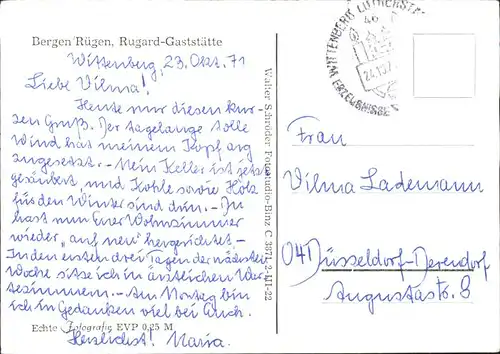 Bergen/Rügen, Rugard-Gaststätte
Wittenberg, 23. Okt. 71
Liebe Vilma!
Heute nur diesen kur-
zen Gruß. Der tagelange tolle
Wind hat meinem Kopf arg
zugesetzt. – Mein Keller ist jetzt
gesäubert, und Kohle sowie Holz
für den Winter sind drin. – Du
hast nun Euer Wohnzimmer
wieder „auf neu" hergerichtet. –
In den ersten drei Tagen der nächsten
Woche sitze ich in ärztlichen War-
tezimmern. – Am Montag bin
ich in Gedanken viel bei Euch.
Echte Fotografie EVP 0,25 M
Herzlichst! Maria.
Walter Schröder Fotostudio-Binz C 3871 2-III-22
WITTENBERG LUTHERSTADT
46
24.10.7
Frau
Vilma Lademann
(04) Düsseldorf-Derendorf
Augustastr. 8